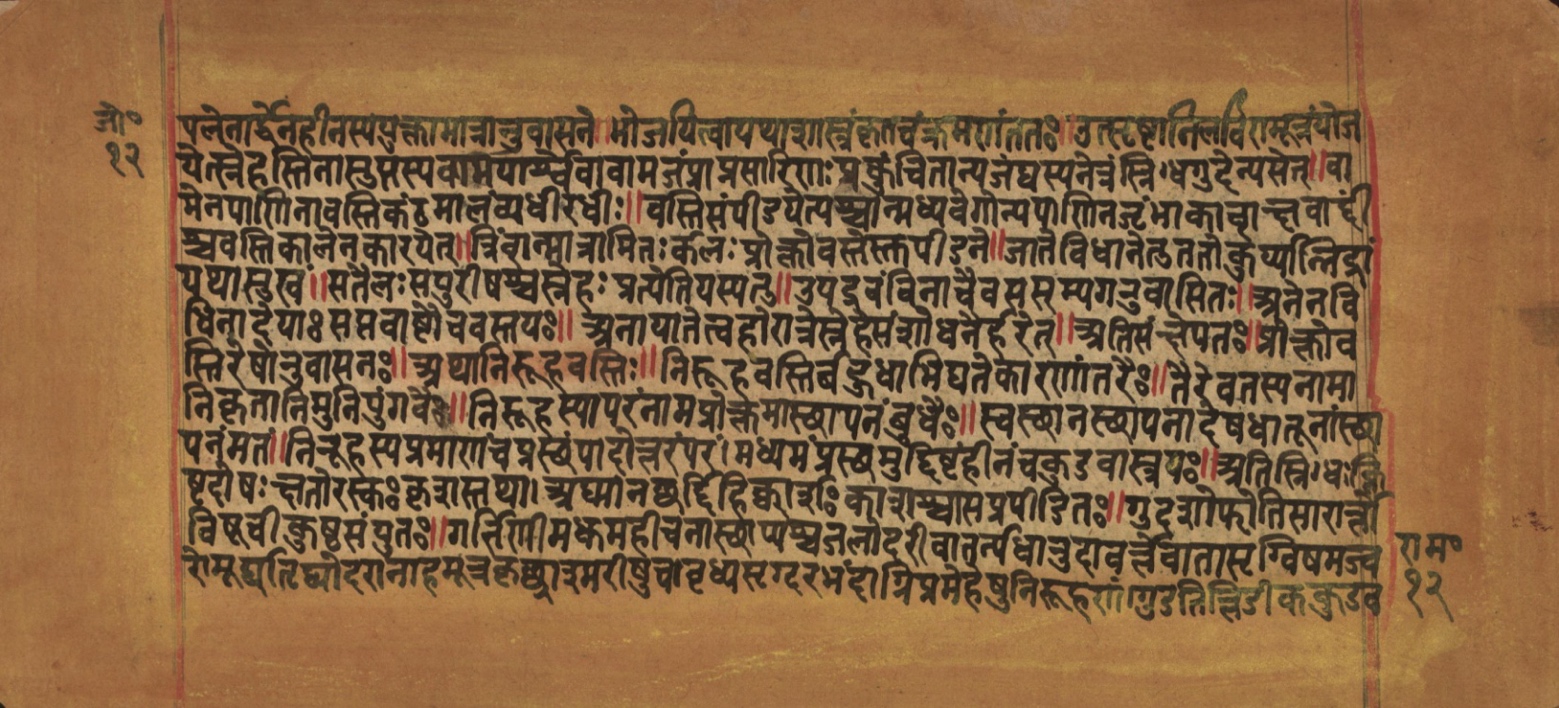 ओ॰
१२
पलेनार्द्धेनहीनस्ययुक्तामात्रानुवासने॥भोजयित्वायथाशास्त्रंकृतचंक्रमणंततः॥उत्सृष्टानिलविण्मूत्रंयोज
येत्स्नेहस्तिनासुप्तस्यवामपार्श्वेवावामजंघाप्रसारिणः प्रकुंचितान्यजंघस्यनेत्रंस्निग्धगुदेन्यसेत्॥वा
मेनपाणिनावस्तिकंठमालंव्यधीरधीः॥वस्तिसंपीडयेत्पश्चान्मध्यवेगोन्यपाणिनजृंभाकाचाक्षवादीं
श्चवस्तिकालेनकारयेत्॥त्रिंशन्मात्रामितःकालःप्रोक्तोवस्तेस्तपीडने॥जातेविधानेतुततोकुर्य्यान्निद्रां
यथासुखं॥सतैलःसपुरीषश्चस्नेहःप्रत्येतियस्यतु॥उपद्रवंविनाचैवससम्यगनुवासितः॥अनेनवि
धिनादेयाःसप्तवाष्टौचवस्तयः॥अनायातेत्वहोरात्रेस्नेहसंशोधनैर्हरेत्॥अतिसंक्षेपतः॥प्रोक्तोव
स्तिरेषोनुवासनः॥अथानिरूहवस्तिः॥निरूहवस्तिर्बहुधाभिद्यतेकारणांतरैः॥तैरेवतस्यनामा
निकृतानिमुनिपुंगवैः॥निरूहस्यापरंनामप्रोक्तमास्थापनंबुधैः॥स्वस्थानस्थापनादोषधातूनांस्था
पनंमतं॥निरूहस्यप्रमाणंचप्रस्थंपादोत्तरंपरं।मध्यमंप्रस्थमुद्दिष्टंहीनंचकुडवास्त्रयः॥अतिस्निग्धःक्लि
ष्टदोषःक्षतोरस्कःकृशस्तथा।अध्मानछर्द्दिहिक्कार्शःकाशश्वासप्रपीडितः॥गुदशोफातिसारार्त्तो
विषूचीकुष्ठसंयुतः॥गर्भिणीमधुमेहीचनास्थाप्यश्चजलोदरीवातव्याधावुदावर्त्तेवातासृग्विषमज्व
रोमूर्छातृष्णोदरानाहमूत्रकृछ्राश्मरीषुचवृध्यसृग्दरमंदाग्निप्रमेहेषुनिरूहणं।गुडतिंत्तिडीककुडव
राम॰
१२